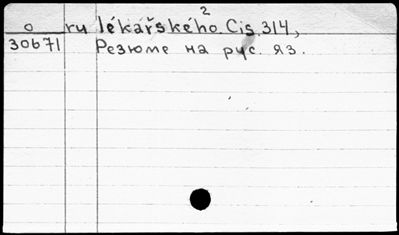 2
o ru lékařského. Čis. 314,
30671 Резюме на рус. яз.